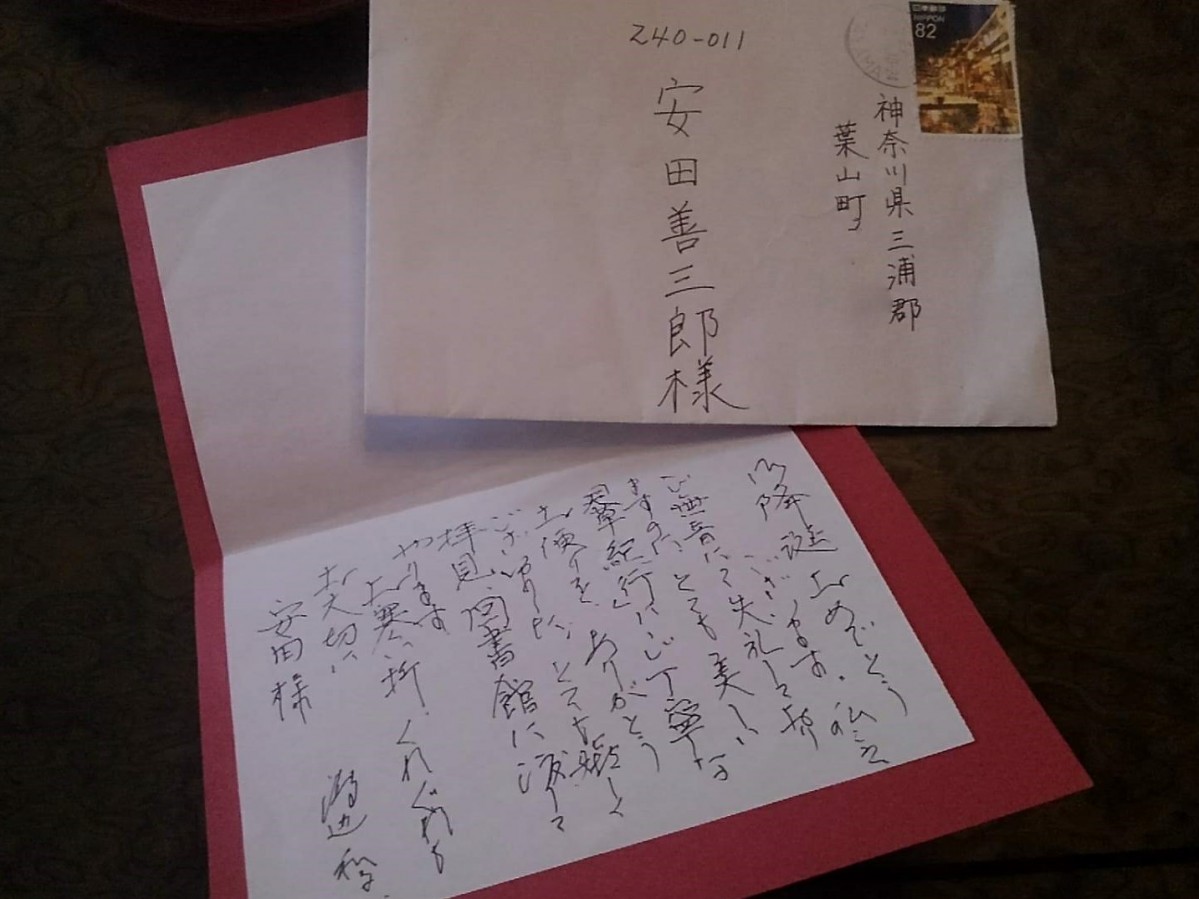 240-011
日本郵便
NIPPON
82
神奈川県三浦郡
葉山町
安田善三郎様
御降誕おめでとう
ございます。私こそ
ご無音にて失礼しており
ますのに、とても美しい
紀行」にご丁寧な
お便りを、ありがとう
ございました。とても嬉しく
拝見、図書館に渡して
やります
お寒い折、くれぐれも
お大切に
安田様
渡辺